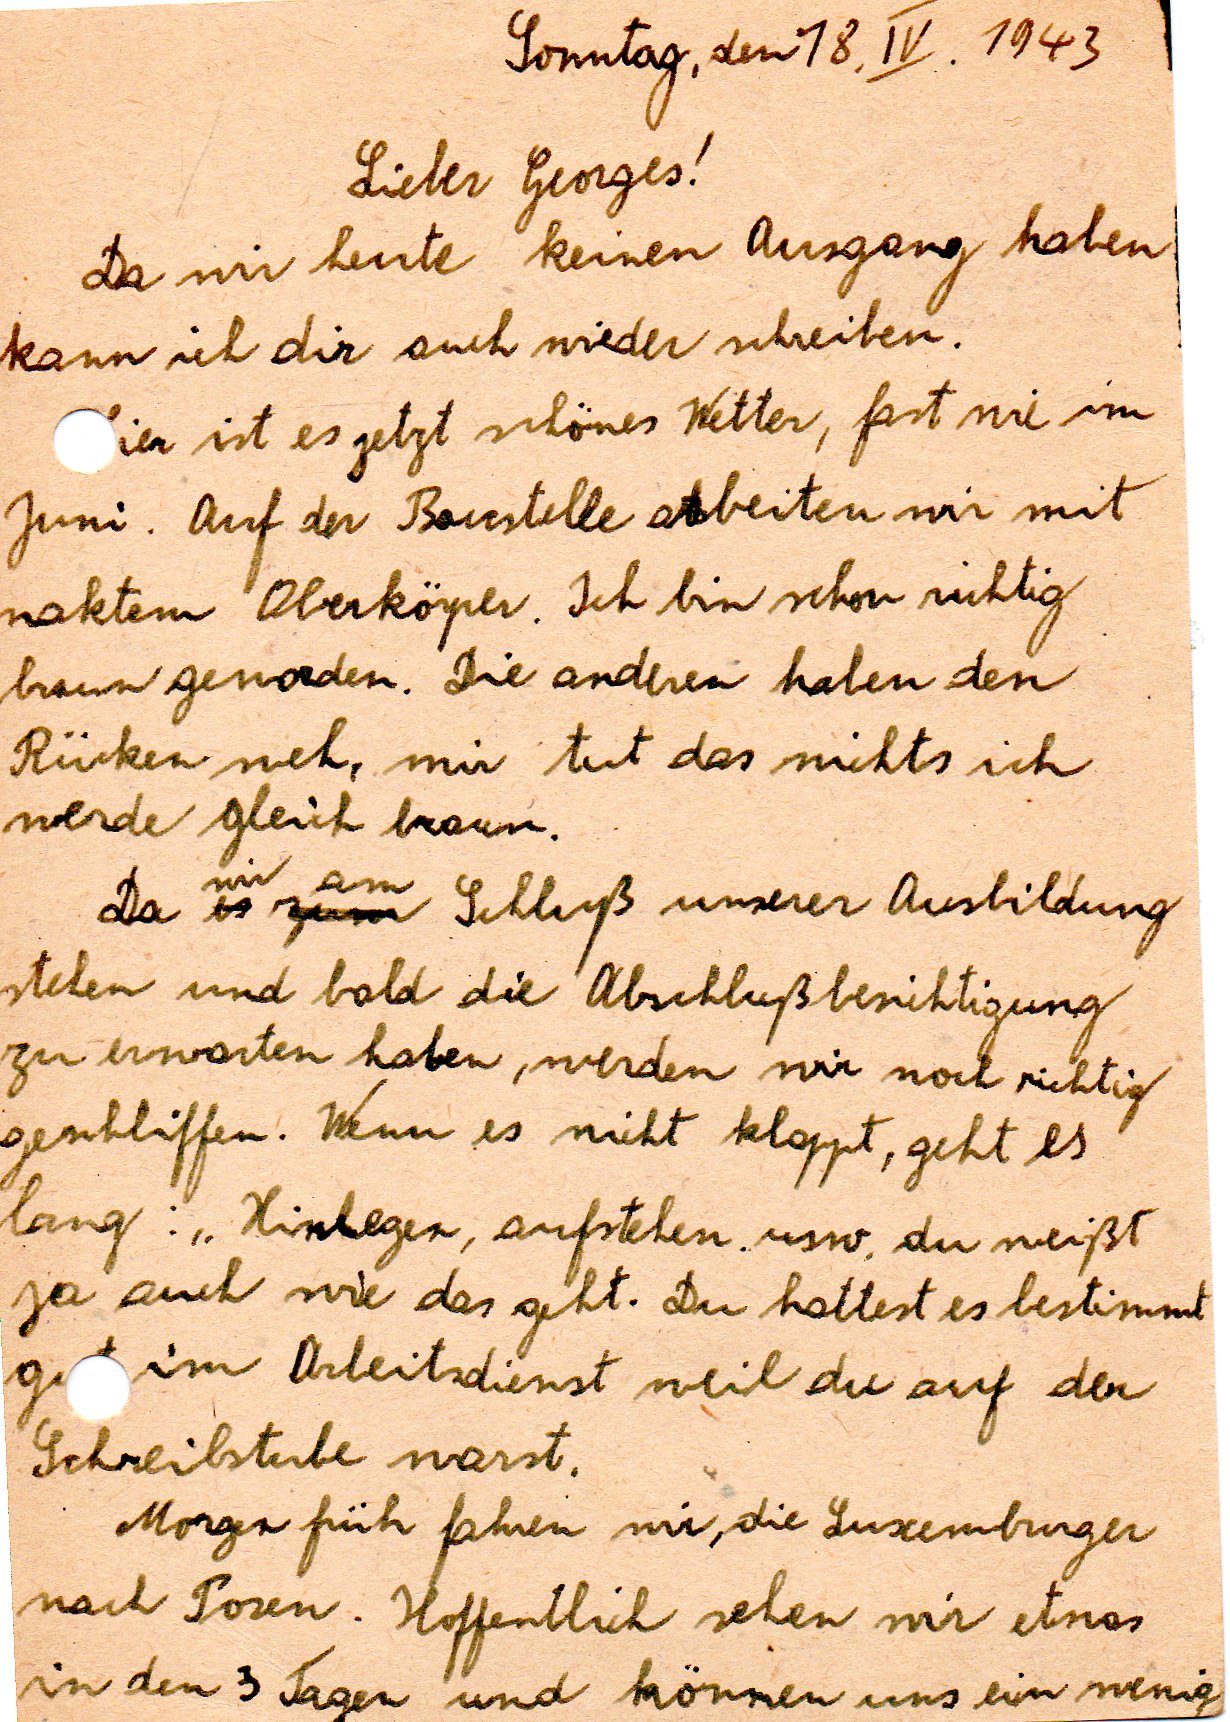 Sonntag, den 18. IV. 1943
Lieber Georges!
Da wir heute keinen Ausgang haben
kann ich dir auch wieder schreiben.
Hier ist es jetzt schönes Wetter, fast wie im
Juni. Auf der Baustelle arbeiten wir mit
naktem Oberkörper. Ich bin schon richtig
braun geworden. Die anderen haben den
Rücken weh, mir tut das nichts ich
werde gleich braun.
Da wir am Schluß unserer Ausbildung
stehen und bald die Abschlußbesichtigung
zu erwarten haben, werden wir noch richtig
geschliffen. Wenn es nicht klappt, geht es
lang: „Hinlegen, aufstehen. usw. du weißt
ja auch wie das geht. Du hattest es bestimmt
gut im Arbeitsdienst weil du auf der
Schreibstube warst.
Morgen früh fahren wir, die Luxemburger
nach Posen. Hoffentlich sehen wir etwas
in den 3 Tagen und können uns ein wenig